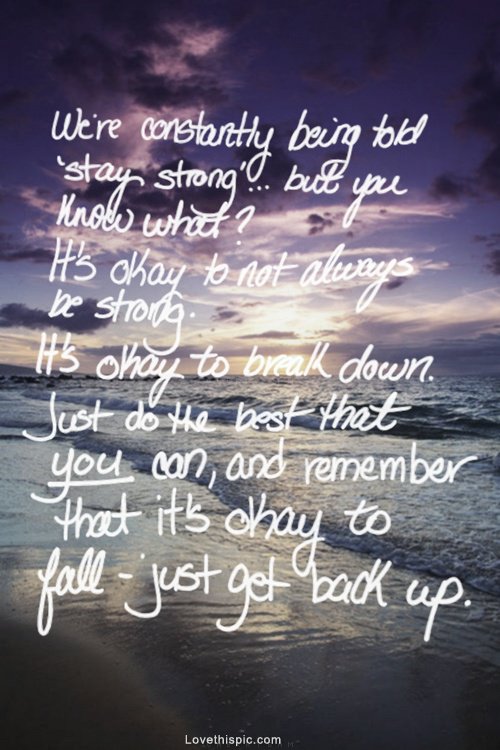 We're constantly being told
'stay strong'... but you
know what?
It's okay to not always
be strong.
It's okay to break down.
Just do the best that
you can, and remember
that it's okay to
fall - just get back up.
Lovethispic.com